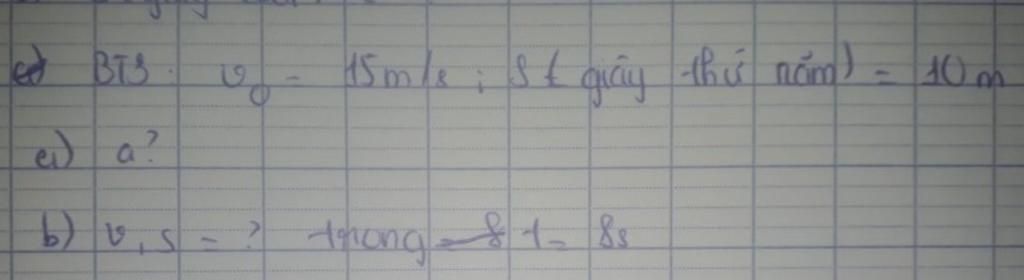 BT3: v₀ = 15m/s ; S (giây thứ năm) = 10m
a) a?
b) v, s = ? trong t = 8s